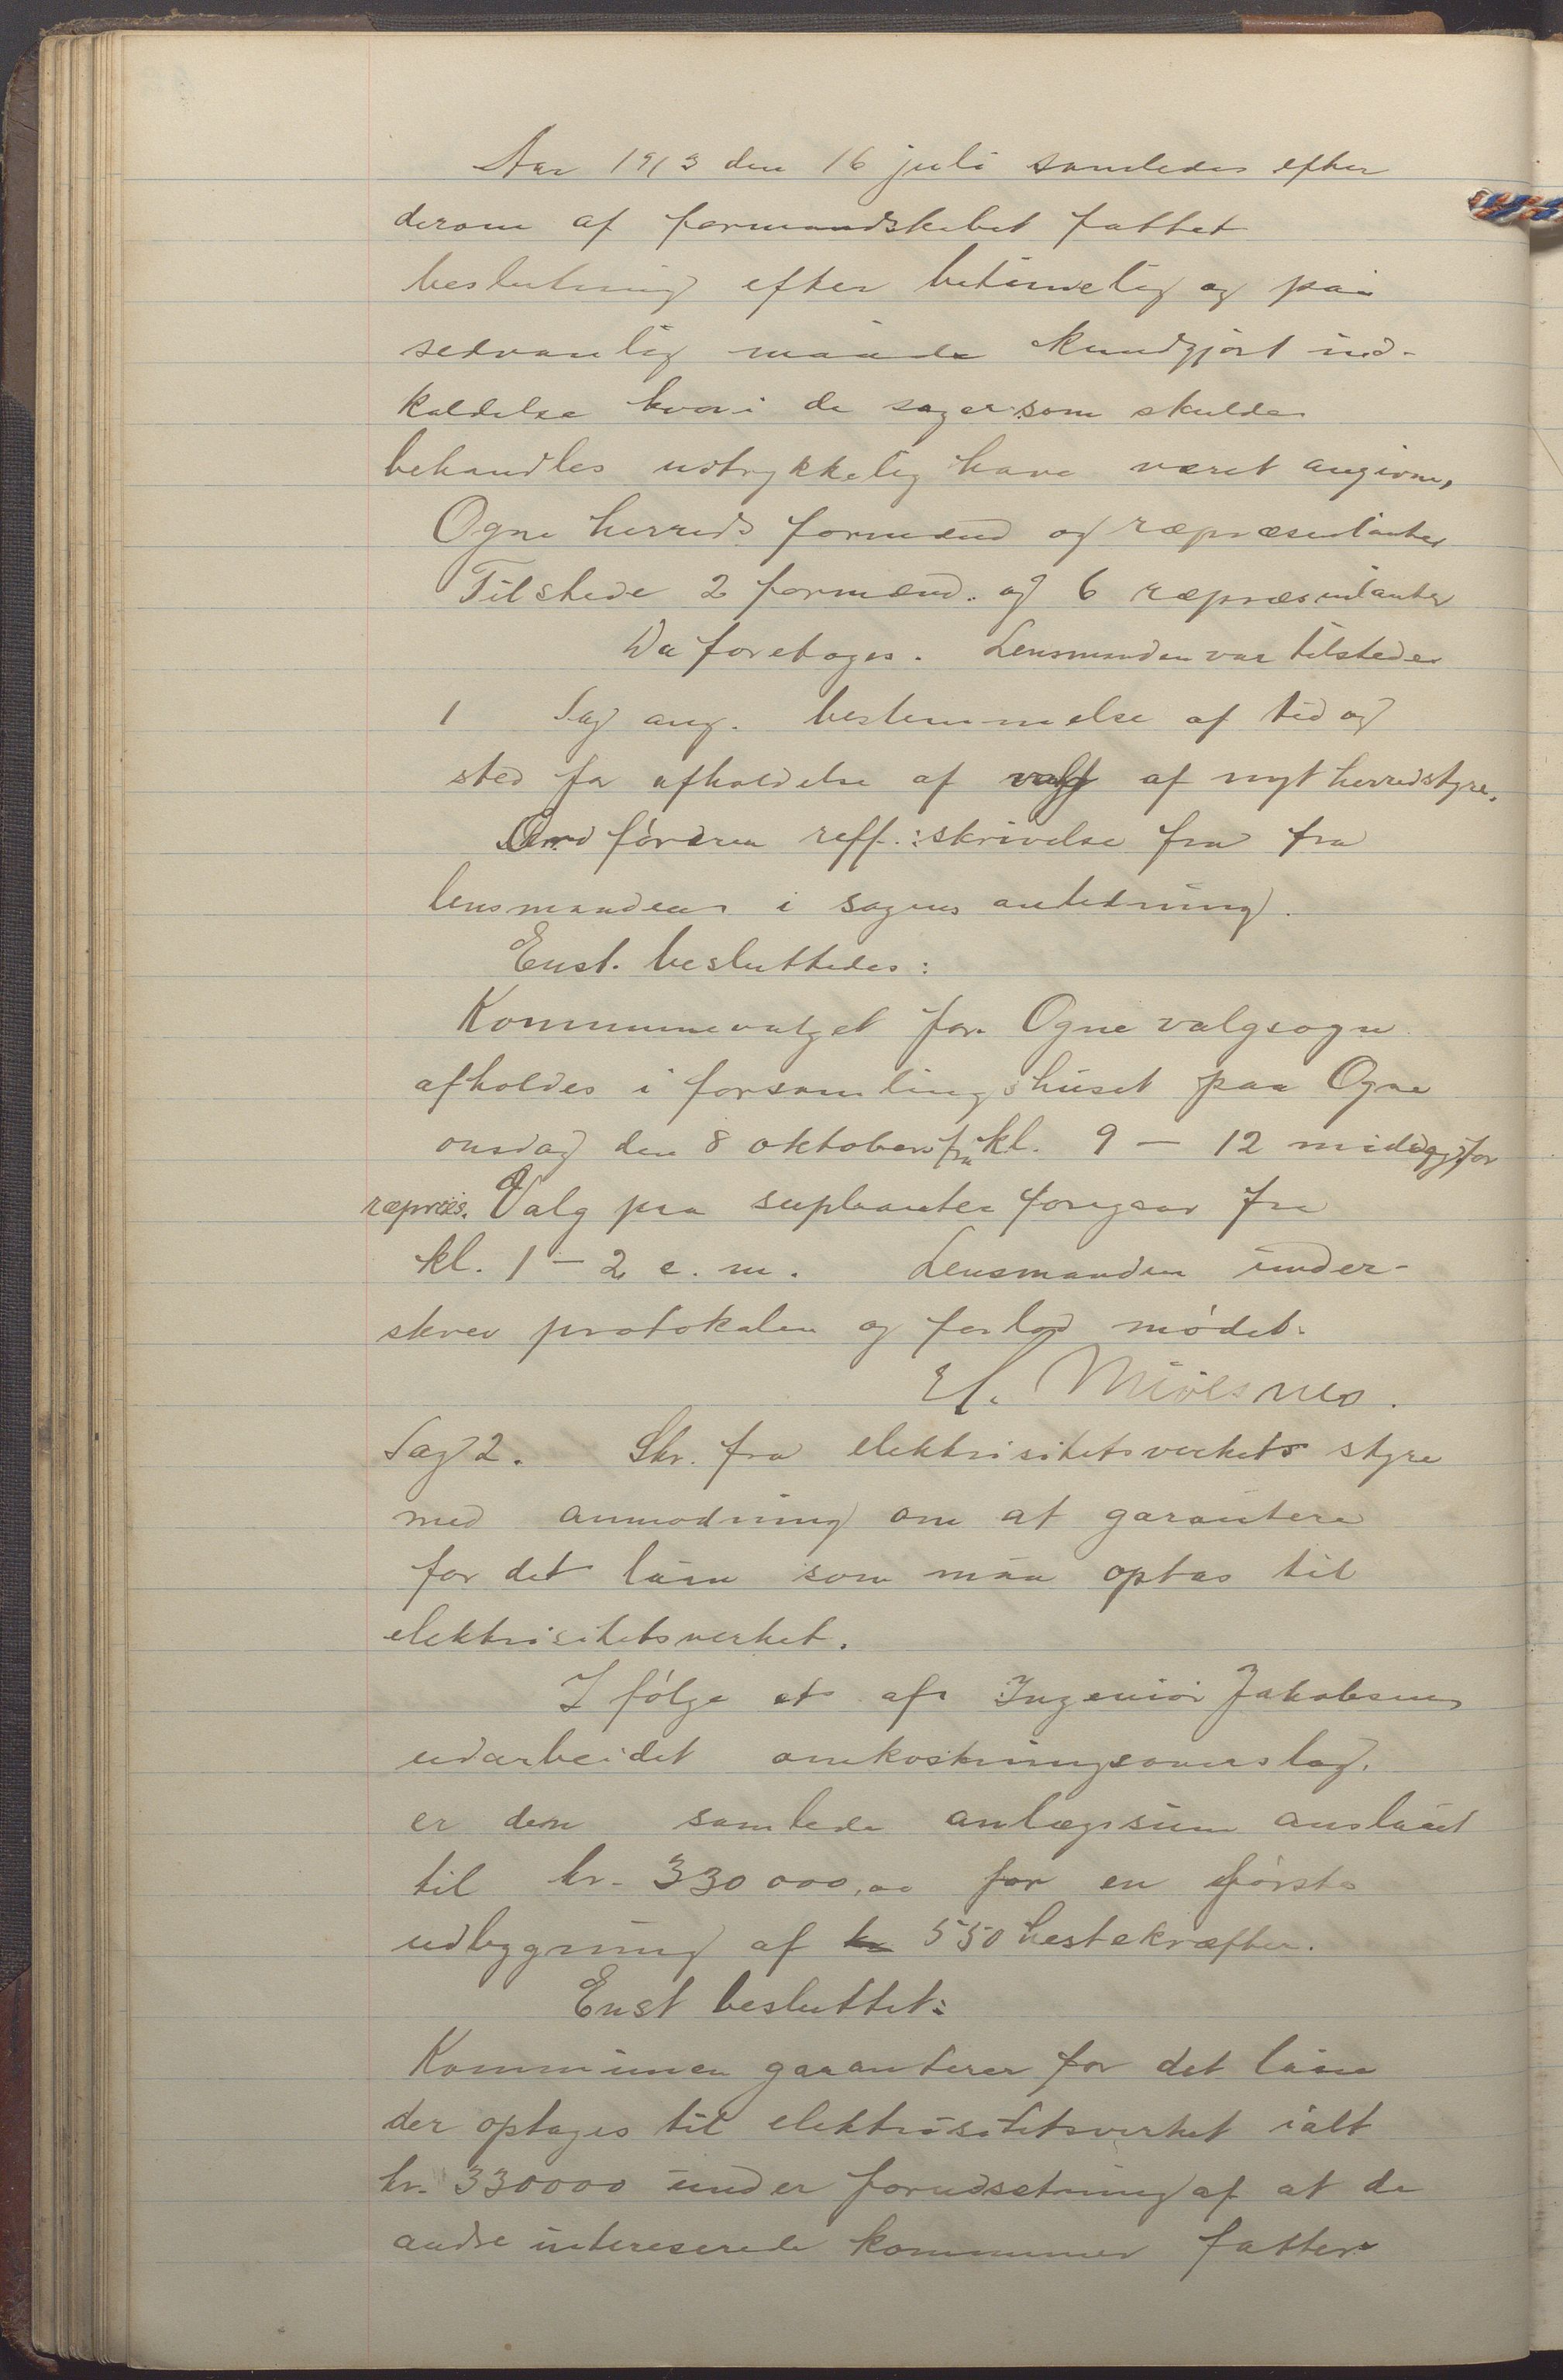 Aar 1913 den 16 juli samledes efter
derom af formandskabet fattet
beslutning efter betimelig og paa
sedvanlig maade kundgjort ind-
kaldelse hvori de sager som skulde
behandles udtrykkelig have været angivne,
Ogne herreds formænd og repræsentanter
Tilstede 2 formænd. og 6 repræsentanter
Da foretoges. Lensmanden var tilstede
1 Sag ang. bestemmelse af tid og
sted for afholdelse af valg af nyt herredstyre.
Ordføreren reff.: skrivelse fra fra
lensmanden i sagens anledning.
Enst. besluttedes:
Kommunevalget for Ogne valgsogn
afholdes i forsamlingshuset paa Ogne
onsdag den 8 oktober fra kl. 9 – 12 middag for
repræs. Valg paa suplanter foregaar fra
kl. 1 – 2 e. m. Lensmanden under-
skrev protokolen og forlod mødet.
Sag 2. Skr. fra elektrisitetsverkets styre
med anmodning om at garantere
for det laan som maa optas til
elektrisitetsverket.
I følge et af Ingeniør Jakobsen
udarbeidet omkostningsoverslag.
er den samlede anlægssum anslaaet
til kr. 330 000,00 for en første
udbygning af kr 550 hestekræfter.
Enst besluttet:
Kommunen garanterer for det laan
der optages til elektrisitetsverket ialt
kr. 330000 under forudsetning af at de
andre intereserede kommuner fatter